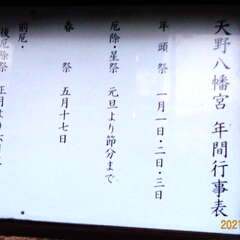 天野八幡宮 年間行事表
年頭祭 一月一日・二日・三日
厄除・星祭 元旦より節分まで
春祭 五月十七日
前厄・
後厄除祭 正月より
2021